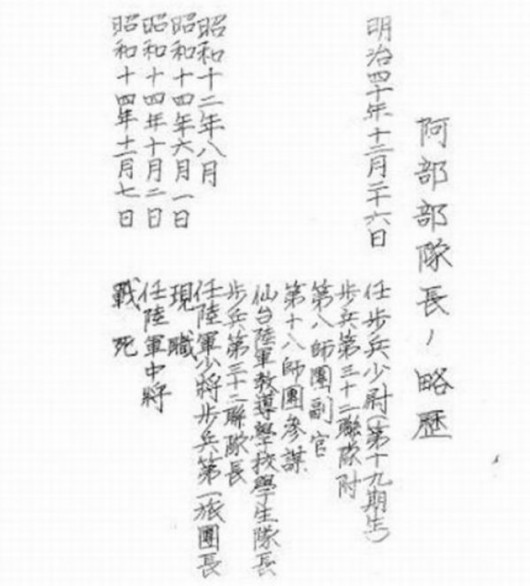 阿部部隊長ノ略歴
明治四十年十二月二十六日
任歩兵少尉(第十九期生)
歩兵第三十二聯隊附
第八師團副官
第十八師團参謀
仙台陸軍教導學校學生隊長
昭和十二年八月
歩兵第三十二聯隊長
昭和十四年六月一日
任陸軍少將歩兵第一旅團長
現職
昭和十四年十月二日
任陸軍中將
昭和十四年十一月七日
戰死